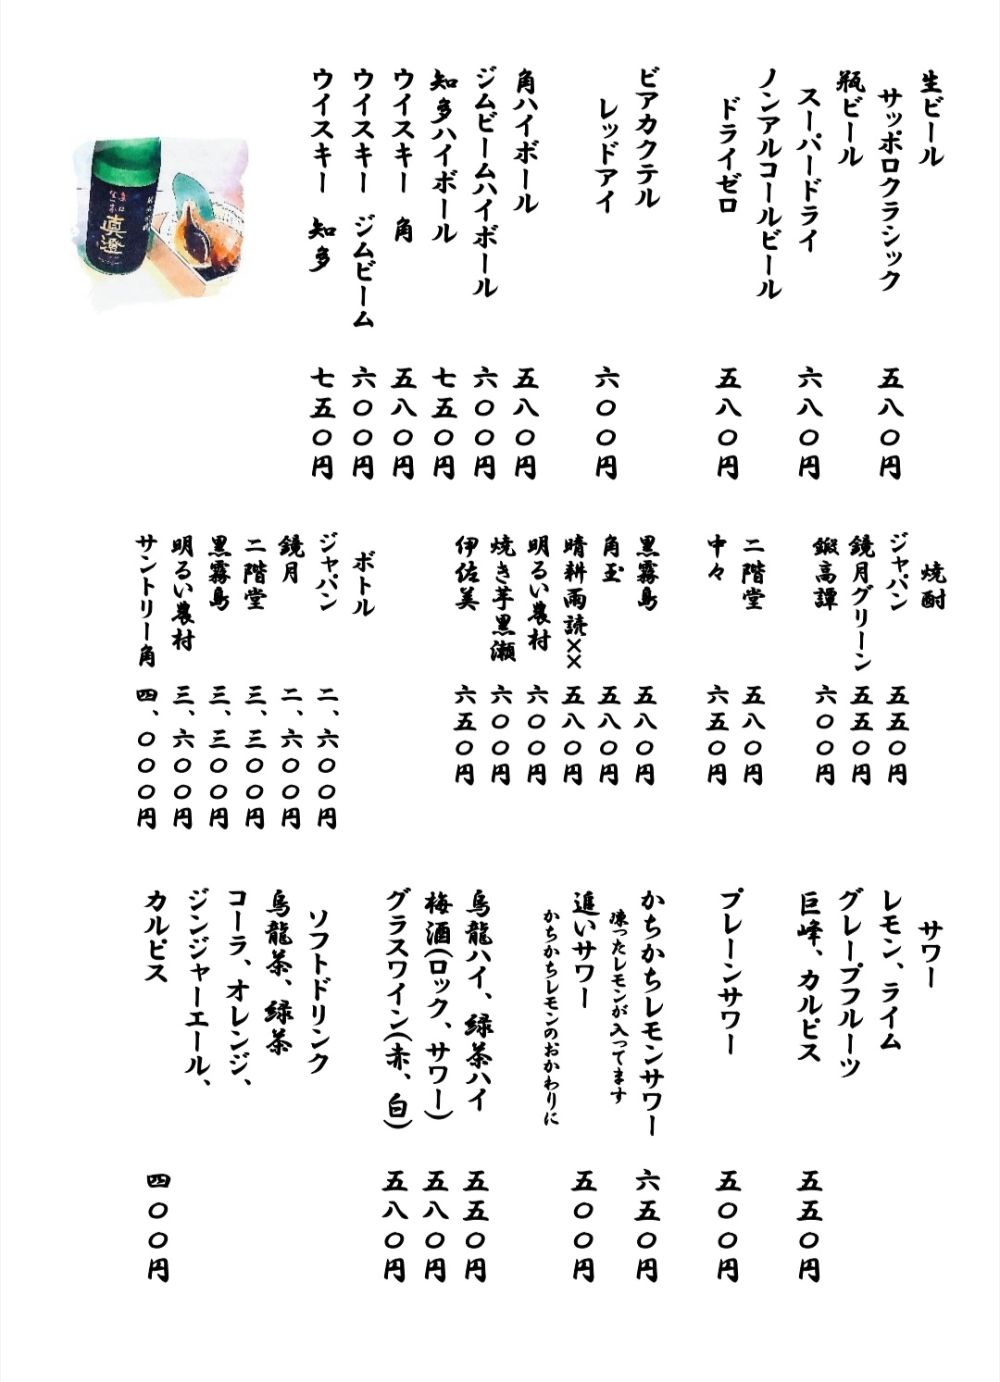 生ビール
サッポロクラシック 五八〇円
瓶ビール
スーパードライ 六八〇円
ノンアルコールビール
ドライゼロ 五八〇円
ビアカクテル
レッドアイ 六〇〇円
角ハイボール 五八〇円
ジムビームハイボール 六〇〇円
知多ハイボール 七五〇円
ウイスキー 角 五八〇円
ウイスキー ジムビーム 六〇〇円
ウイスキー 知多 七五〇円
真澄
焼酎
ジャパン 五五〇円
鏡月グリーン 五五〇円
鍛高譚 六〇〇円
二階堂 五八〇円
中々 六五〇円
黒霧島 五八〇円
角玉 五八〇円
晴耕雨読×× 五八〇円
明るい農村 六〇〇円
焼き芋黒瀬 六〇〇円
伊佐美 六五〇円
ボトル
ジャパン 二、六〇〇円
鏡月 二、六〇〇円
二階堂 三、三〇〇円
黒霧島 三、三〇〇円
明るい農村 三、六〇〇円
サントリー角 四、〇〇〇円
サワー
レモン、ライム
グレープフルーツ
巨峰、カルピス 五五〇円
プレーンサワー 五〇〇円
かちかちレモンサワー 六五〇円
凍ったレモンが入ってます
追いサワー 五〇〇円
かちかちレモンのおかわりに
烏龍ハイ、緑茶ハイ 五五〇円
梅酒(ロック、サワー) 五八〇円
グラスワイン(赤、白) 五八〇円
ソフトドリンク
烏龍茶、緑茶
コーラ、オレンジ、
ジンジャーエール、
カルピス 四〇〇円